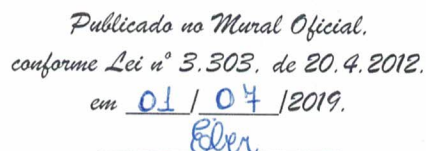 Publicado no Mural Oficial,
conforme Lei nº 3.303, de 20.4.2012.
em 01/07/2019.
Eber